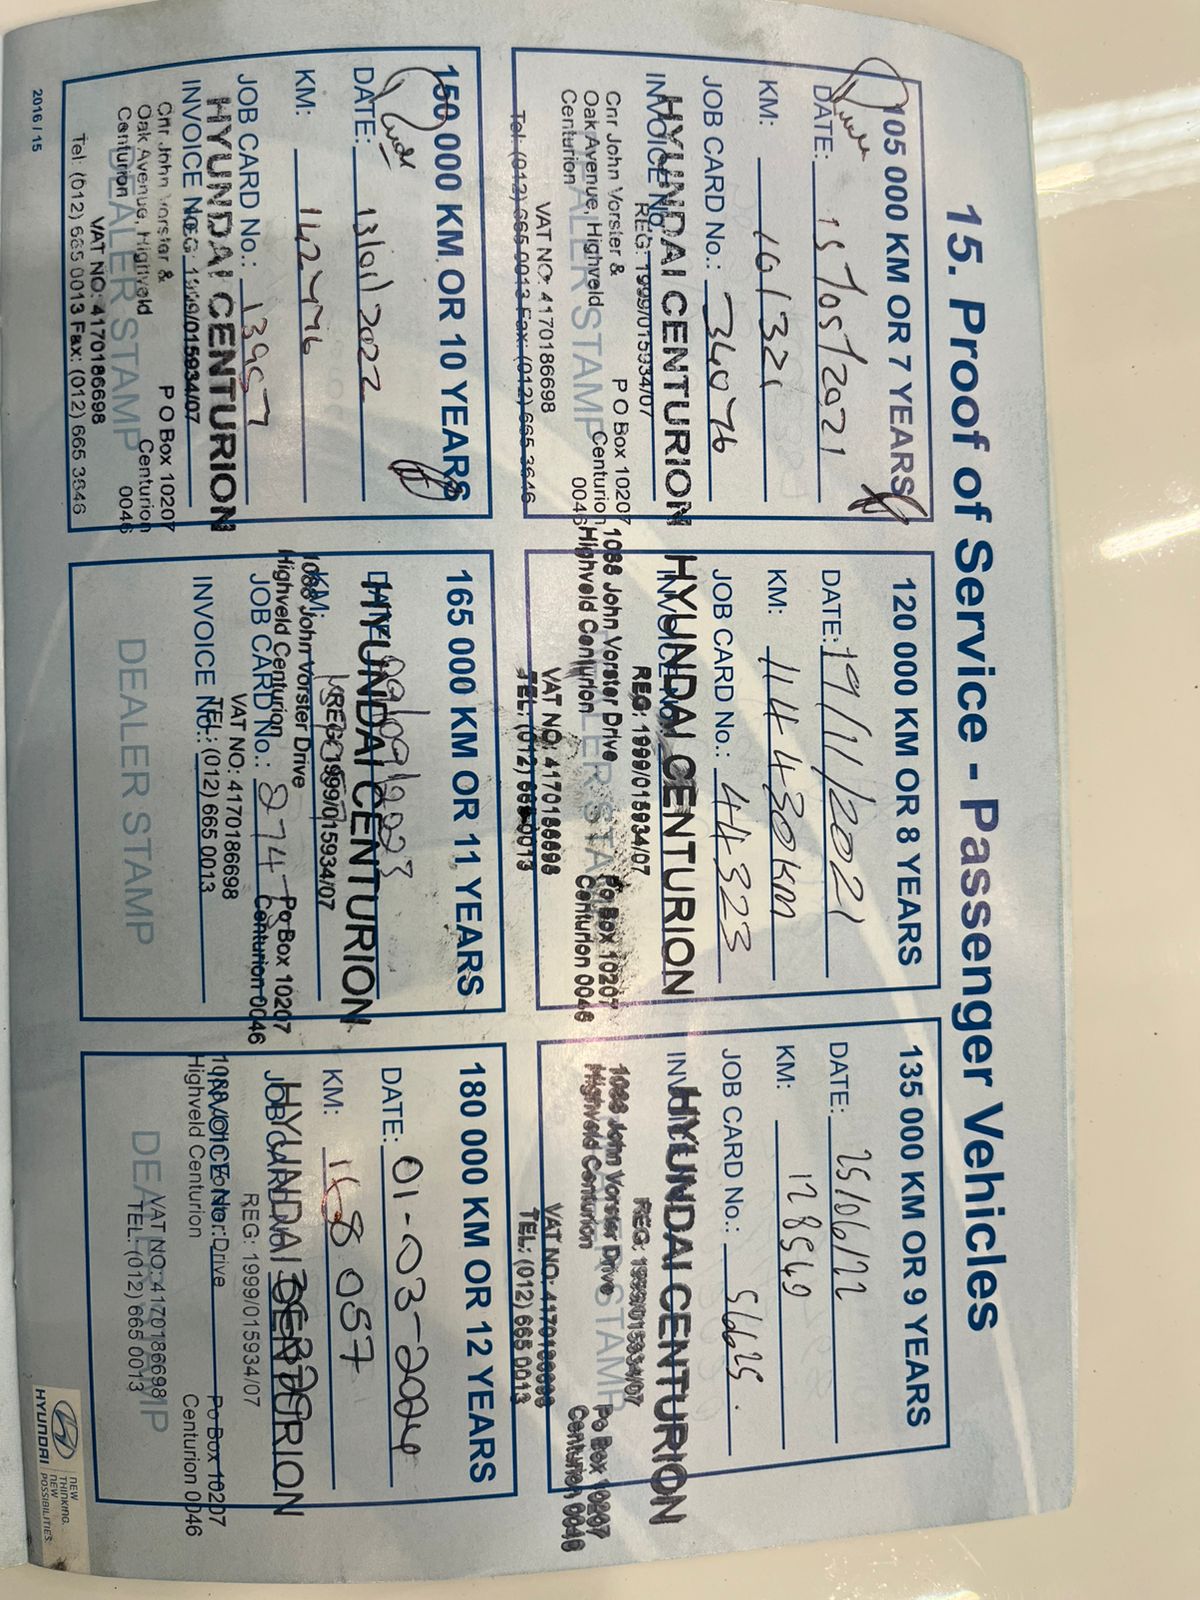 15. Proof of Service - Passenger Vehicles
105 000 KM OR 7 YEARS
DATE: 15/05/2021
KM: 101321
JOB CARD No.: 34076
INVOICE No.
HYUNDAI CENTURION
REG: 1999/015934/07
Cnr John Vorster & P O Box 10207
Oak Avenue, Highveld Centurion
Centurion 0046
DEALER STAMP
VAT NO: 4170186698
Tel: (012) 665 0013 Fax: (012) 665 3646
120 000 KM OR 8 YEARS
DATE: 19/11/2021
KM: 114430km
JOB CARD No.: 44323
INVOICE No.
HYUNDAI CENTURION
REG: 1999/015934/07
1088 John Vorster Drive Po Box 10207
Highveld Centurion Centurion 0046
DEALER STAMP
VAT NO: 4170186698
TEL: (012) 665 0013
135 000 KM OR 9 YEARS
DATE: 25/06/22
KM: 128540
JOB CARD No.:
HYUNDAI CENTURION
REG: 1999/015934/07
1088 John Vorster Drive Po Box 10207
Highveld Centurion Centurion 0046
DEALER STAMP
VAT NO: 4170186698
TEL: (012) 665 0013
150 000 KM OR 10 YEARS
DATE: 13/01/2022
KM: 142776
JOB CARD No.: 13957
INVOICE No.:
HYUNDAI CENTURION
REG: 1999/015934/07
Cnr John Vorster & P O Box 10207
Oak Avenue, Highveld Centurion
Centurion 0046
DEALER STAMP
VAT NO: 4170186698
Tel: (012) 665 0013 Fax: (012) 665 3646
165 000 KM OR 11 YEARS
DATE:
HYUNDAI CENTURION
KM:
REG: 1999/015934/07
1088 John Vorster Drive Po Box 10207
Highveld Centurion Centurion 0046
JOB CARD No.:
VAT NO: 4170186698
TEL: (012) 665 0013
INVOICE No.:
DEALER STAMP
180 000 KM OR 12 YEARS
DATE: 01-03-2024
KM: 168057
HYUNDAI CENTURION
JOB CARD No.:
REG: 1999/015934/07
1088 John Vorster Drive Po Box 10207
INVOICE No.:
Highveld Centurion Centurion 0046
DEALER STAMP
VAT NO: 4170186698
TEL: (012) 665 0013
2016 / 15
HYUNDAI
NEW
THINKING.
NEW
POSSIBILITIES.